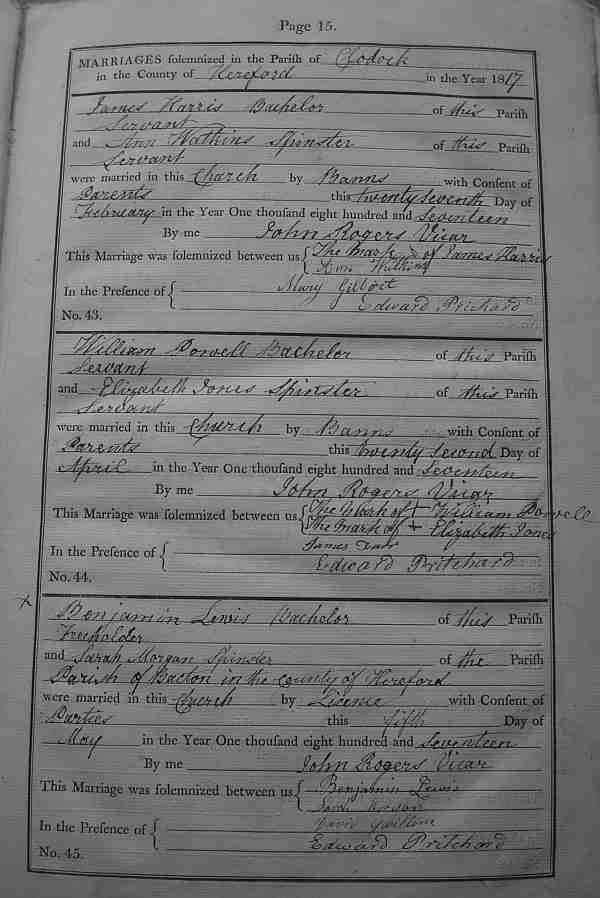 Page 15.
MARRIAGES solemnized in the Parish of Clodock
in the County of Hereford in the Year 1817
James Harris Bachelor of this Parish
Servant
and Ann Watkins Spinster of this Parish
Servant
were married in this Church by Banns with Consent of
Parents this twenty seventh Day of
February in the Year One thousand eight hundred and seventeen
By me John Rogers Vicar
This Marriage was solemnized between us { The Mark x of James Harris
Ann Watkins
In the Presence of { Mary Gilbert
Edward Prichard
No. 43.
William Powell Bachelor of this Parish
Servant
and Elizabeth Jones Spinster of this Parish
Servant
were married in this Church by Banns with Consent of
Parents this twenty Second Day of
April in the Year One thousand eight hundred and seventeen
By me John Rogers Vicar
This Marriage was solemnized between us { The Mark of + William Powell
The mark of + Elizabeth Jones
In the Presence of { James
Edward Pritchard
No. 44.
x
Benjamin Lewis Bachelor of this Parish
Freeholder
and Sarah Morgan Spinster of the Parish
Parish of Bacton in the county of Hereford
were married in this Church by Lisence with Consent of
Parties this fifth Day of
May in the Year One thousand eight hundred and seventeen
By me John Rogers Vicar
This Marriage was solemnized between us { Benjamin Lewis
In the Presence of { David
Edward Pritchard
No. 45.